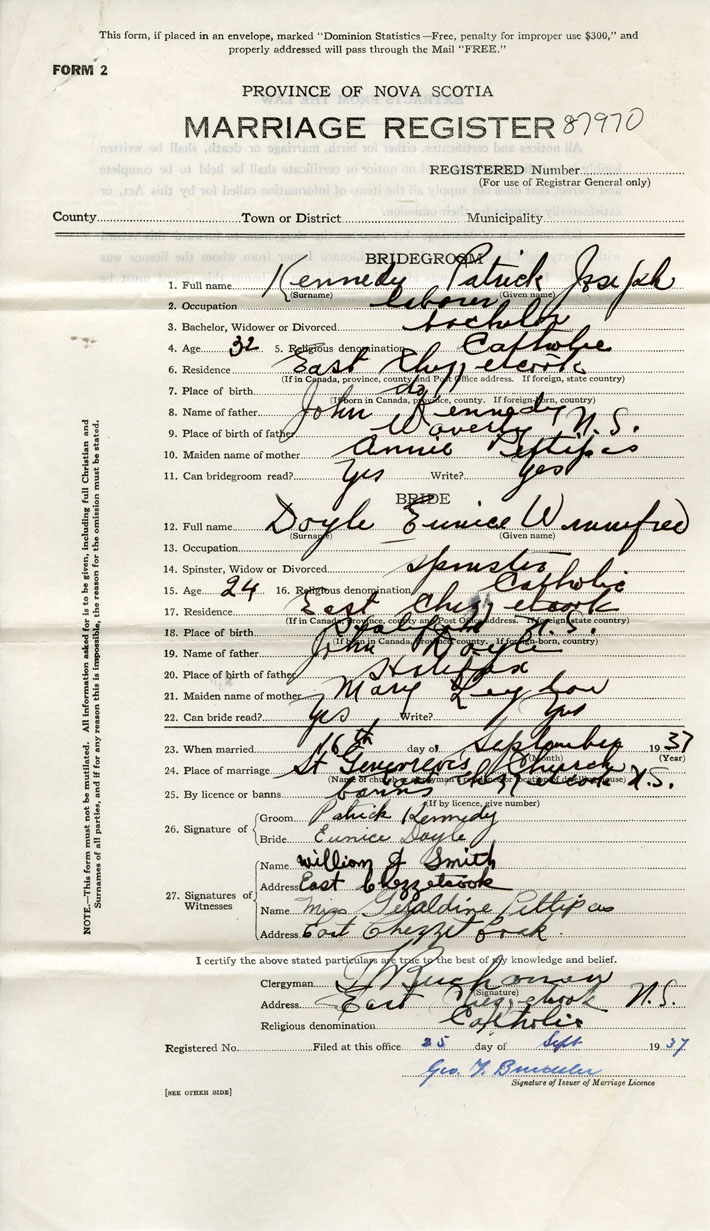 This form, if placed in an envelope, marked "Dominion Statistics—Free, penalty for improper use $300," and
properly addressed will pass through the Mail "FREE."
FORM 2
PROVINCE OF NOVA SCOTIA
MARRIAGE REGISTER 87970
REGISTERED Number
(For use of Registrar General only)
County Town or District Municipality
BRIDEGROOM
1. Full name Kennedy Patrick Joseph
(Surname) (Given name)
2. Occupation laborer
3. Bachelor, Widower or Divorced bachelor
4. Age 32 5. Religious denomination Catholic
6. Residence East Chezzetcook
(If in Canada, province, county and Post Office address. If foreign, state country)
7. Place of birth do
(If born in Canada, province, county. If foreign-born, country)
8. Name of father John Kennedy
9. Place of birth of father Waverly N.S.
10. Maiden name of mother Annie Pettipas
11. Can bridegroom read? Yes Write? Yes
BRIDE
12. Full name Doyle Eunice Winnifred
(Surname) (Given name)
13. Occupation
14. Spinster, Widow or Divorced spinster
15. Age 24 16. Religious denomination Catholic
17. Residence East Chezzetcook
(If in Canada, province, county and Post Office address. If foreign, state country)
18. Place of birth N.S.
(If born in Canada, province, county. If foreign-born, country)
19. Name of father John Doyle
20. Place of birth of father Halifax
21. Maiden name of mother Mary
22. Can bride read? Yes Write? Yes
23. When married 16th day of September 1937
(Month) (Year)
24. Place of marriage St Genevieve's Church
East Chezzetcook N.S.
25. By licence or banns banns
(If by licence, give number)
26. Signature of Groom Patrick Kennedy
Bride Eunice Doyle
27. Signatures of Witnesses
Name William J Smith
Address East Chezzetcook
Name Miss Geraldine Pettipas
Address East Chezzetcook.
I certify the above stated particulars are true to the best of my knowledge and belief.
Clergyman
(Signature)
Address East Chezzetcook N.S.
Religious denomination Catholic
Registered No. Filed at this office 25 day of Sept 1937
Geo.
Signature of Issuer of Marriage Licence
[SEE OTHER SIDE]
NOTE.—This form must not be mutilated. All information asked for is to be given, including full Christian and
Surnames of all parties, and if for any reason this is impossible, the reason for the omission must be stated.